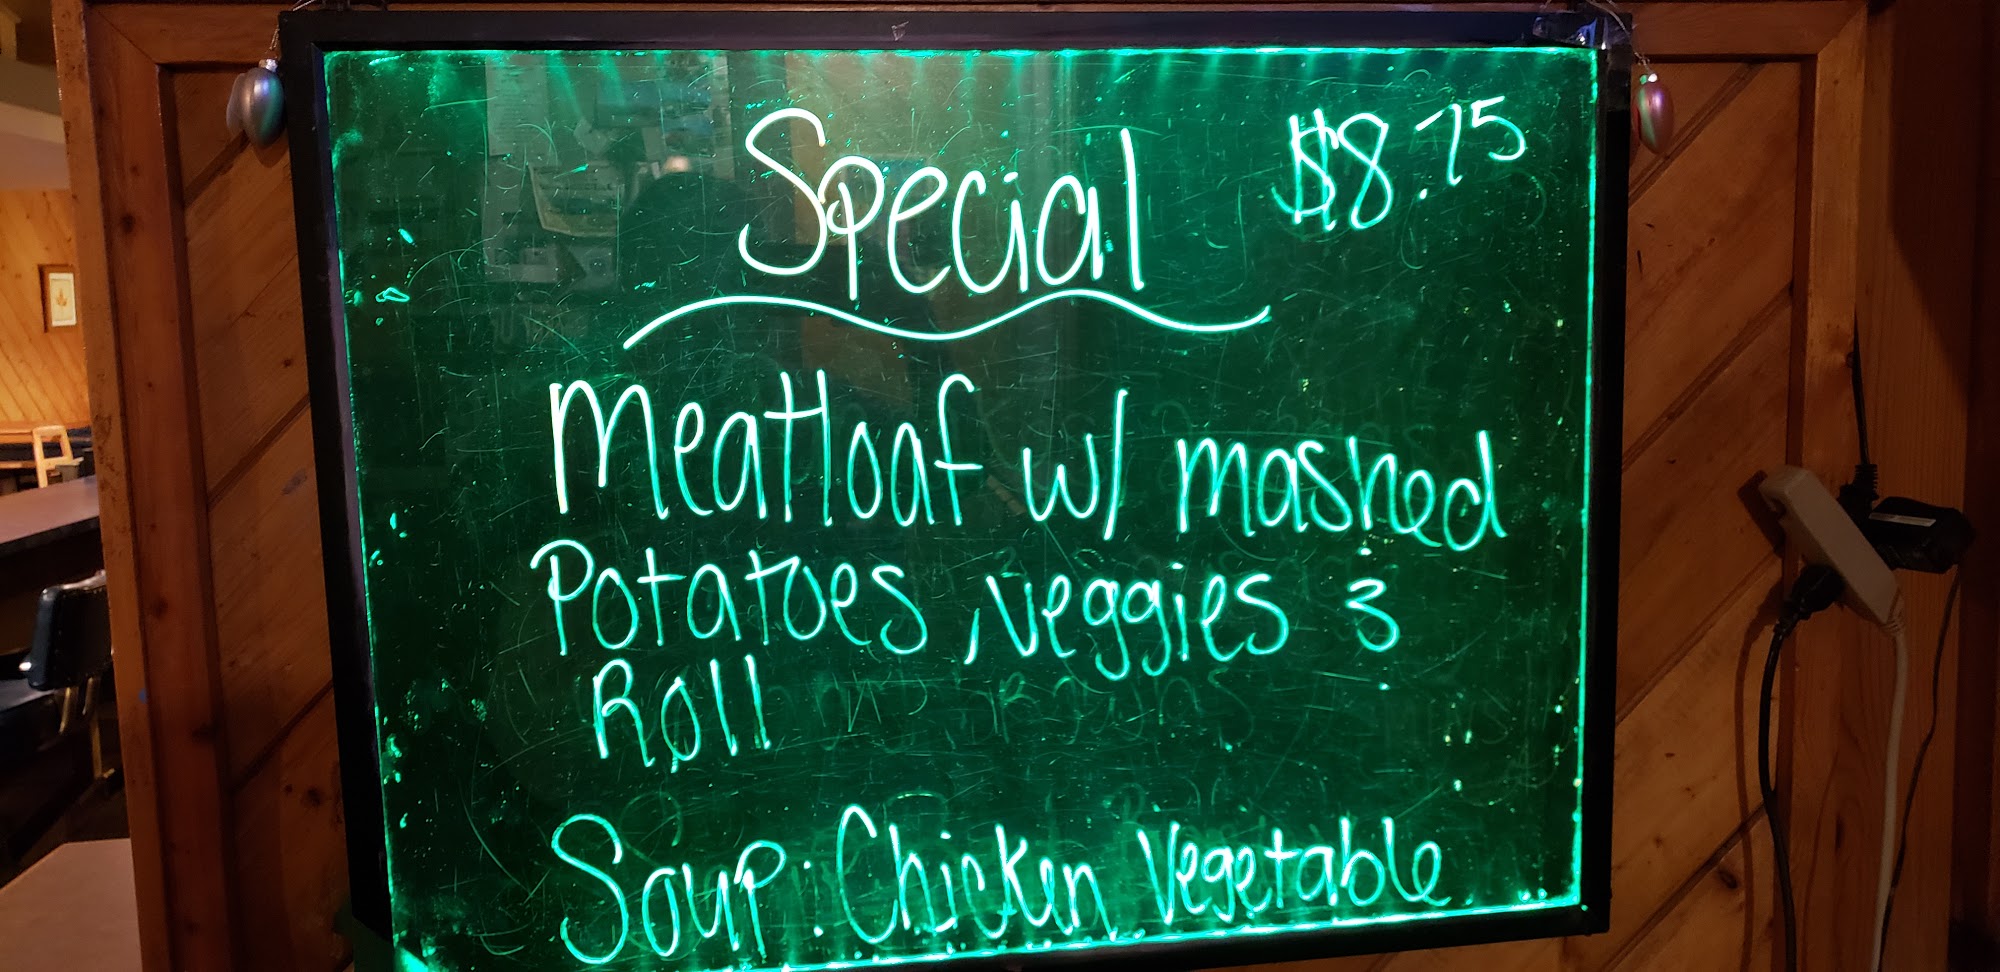 Special $8.75
Meatloaf w/ mashed
Potatoes, veggies &
Roll
Soup: Chicken Vegetable